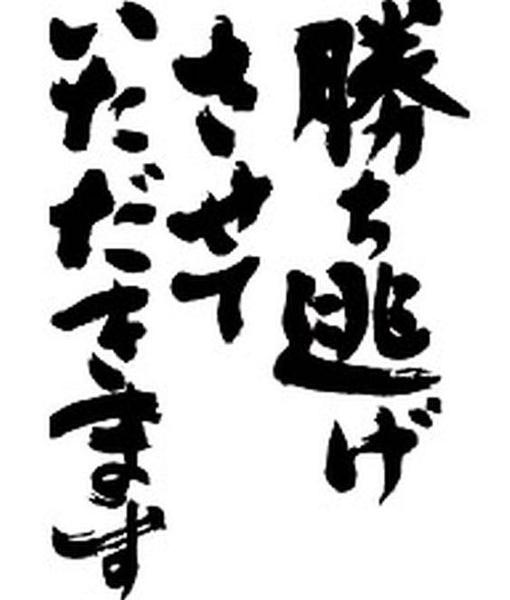 勝ち逃げ
させて
いただきます